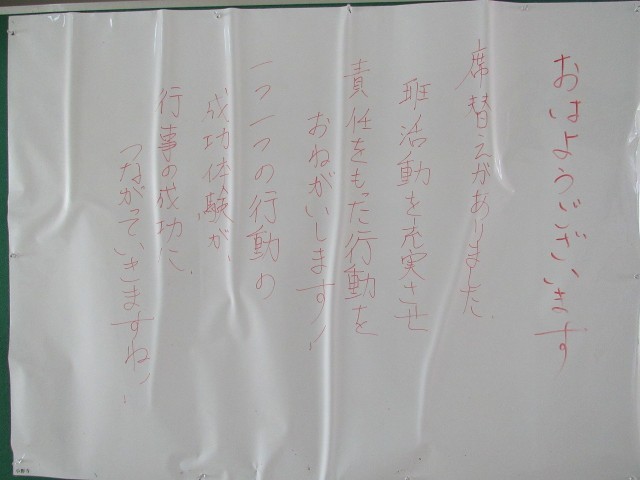 おはようございます
席替えがありました。
班活動を充実させ
責任をもった行動を
おねがいします！
一つ一つの行動の
成功体験が、
行事の成功に、
つながっていきますね！